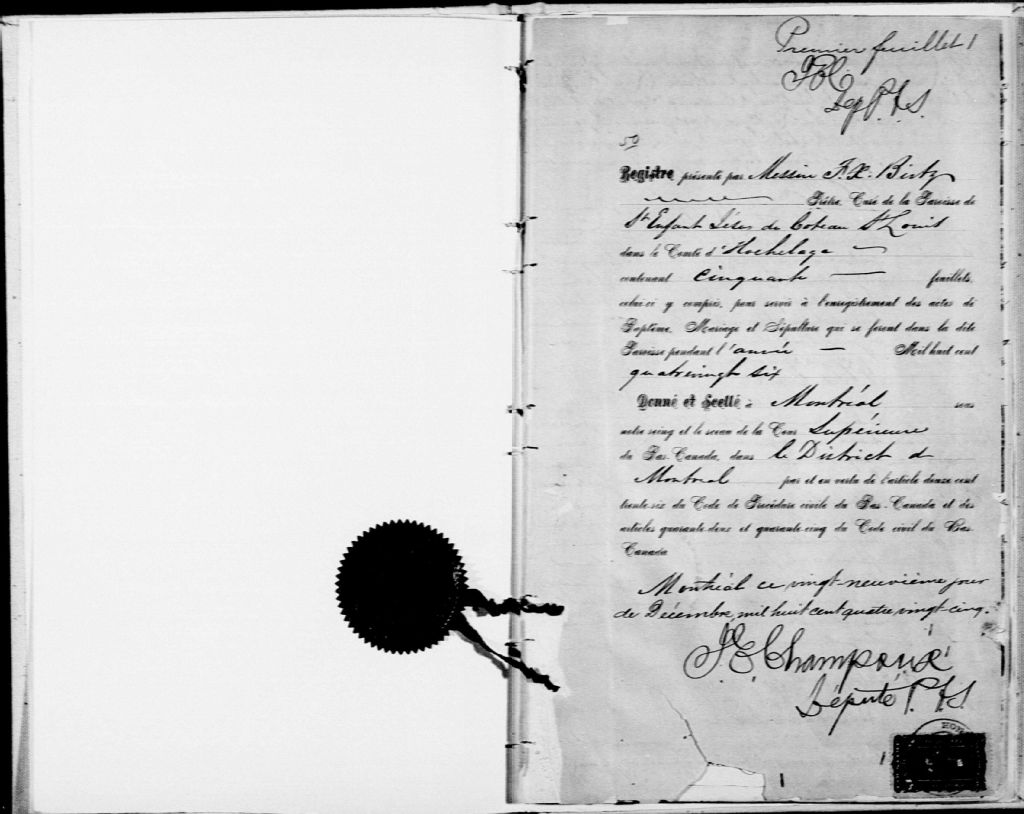 Premier feuillet 1
Dep P.C.S.
50
Registre présenté par Messire F. X. Birtz
Prêtre, Curé de la Paroisse de
St Enfant Jésus du Coteau St Louis
dans le Comté d'Hochelaga
contenant cinquante feuillets,
celui-ci y compris, pour servir à l'enregistrement des actes de
Baptême, Mariage et Sépulture qui se feront dans la dite
Paroisse pendant l'année Mil huit cent
quatrevingt six
Donné et Scellé à Montréal sous
notre seing et le sceau de la Cour Supérieure
du Bas-Canada, dans le District de
Montréal par et en vertu de l'article douze cent
trente-six du Code de Procédure civile du Bas-Canada et des
articles quarante-deux et quarante-cinq du Code civil du Bas-
Canada
Montréal ce vingt-neuvième jour
de Décembre, mil huit cent quatre vingt-cinq.
J. E. Champoux
Député P.C.S.